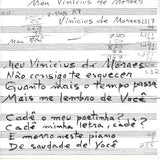 Meu Vinicius de Moraes
Vinicius de Moraes
Meu Vinicius de Moraes
Não consigo te esquecer
Quanto mais o tempo passa
Mais me lembro de Você
Cadê o meu poetinha?
Cadê minha letra, cadê?
E morro neste piano
De saudade de Você